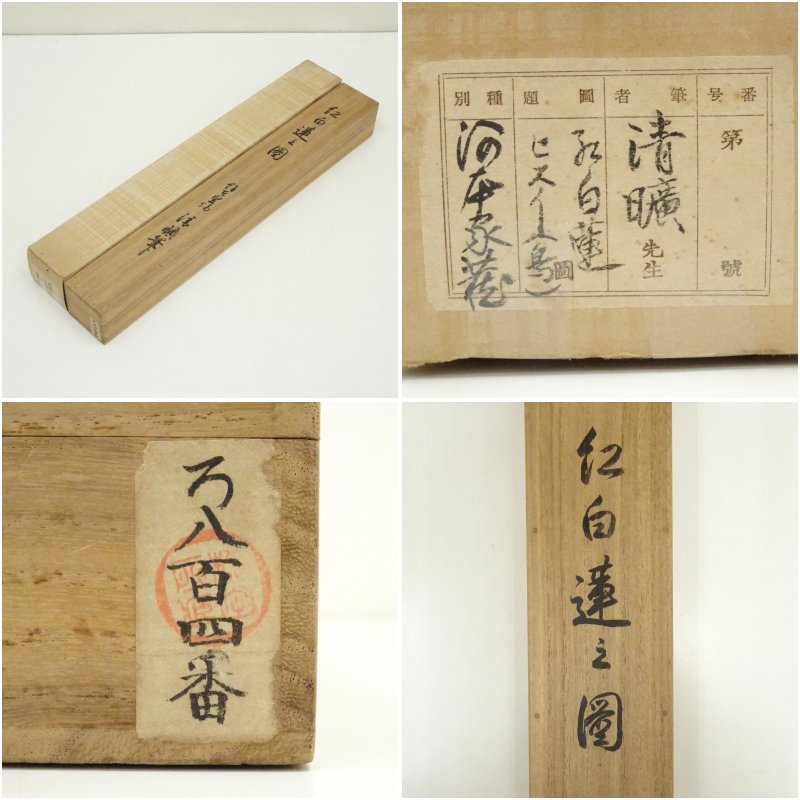 紅白蓮之圖
清曠筆
番号
筆者
圖題
種別
第 號
清曠先生
紅白蓮圖
ヒスイ鳥)
河本家蔵
ろ八百四番
紅白蓮之圖